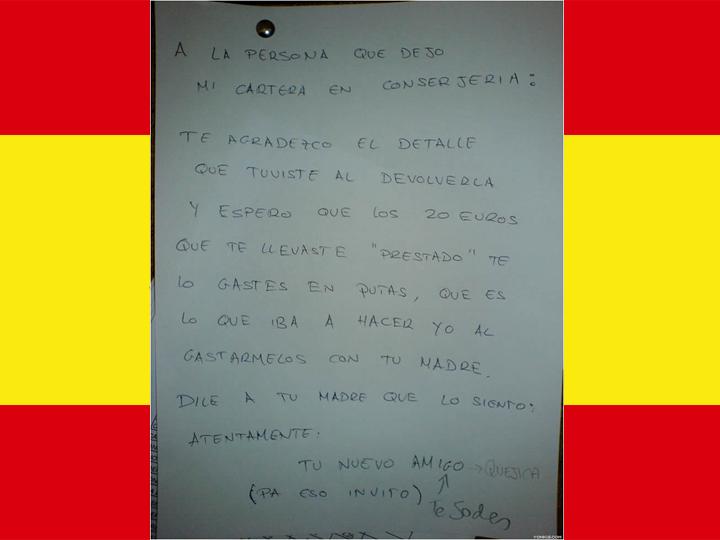 A LA PERSONA QUE DEJO
MI CARTERA EN CONSERJERIA:
TE AGRADEZCO EL DETALLE
QUE TUVISTE AL DEVOLVERLA
Y ESPERO QUE LOS 20 EUROS
QUE TE LLEVASTE "PRESTADO" TE
LO GASTES EN PUTAS, QUE ES
LO QUE IBA A HACER YO AL
GASTARMELOS CON TU MADRE.
DILE A TU MADRE QUE LO SIENTO;
ATENTAMENTE:
TU NUEVO AMIGO → QUEJICA
(PA ESO INVITO) Te Jodes
YONKIS.COM